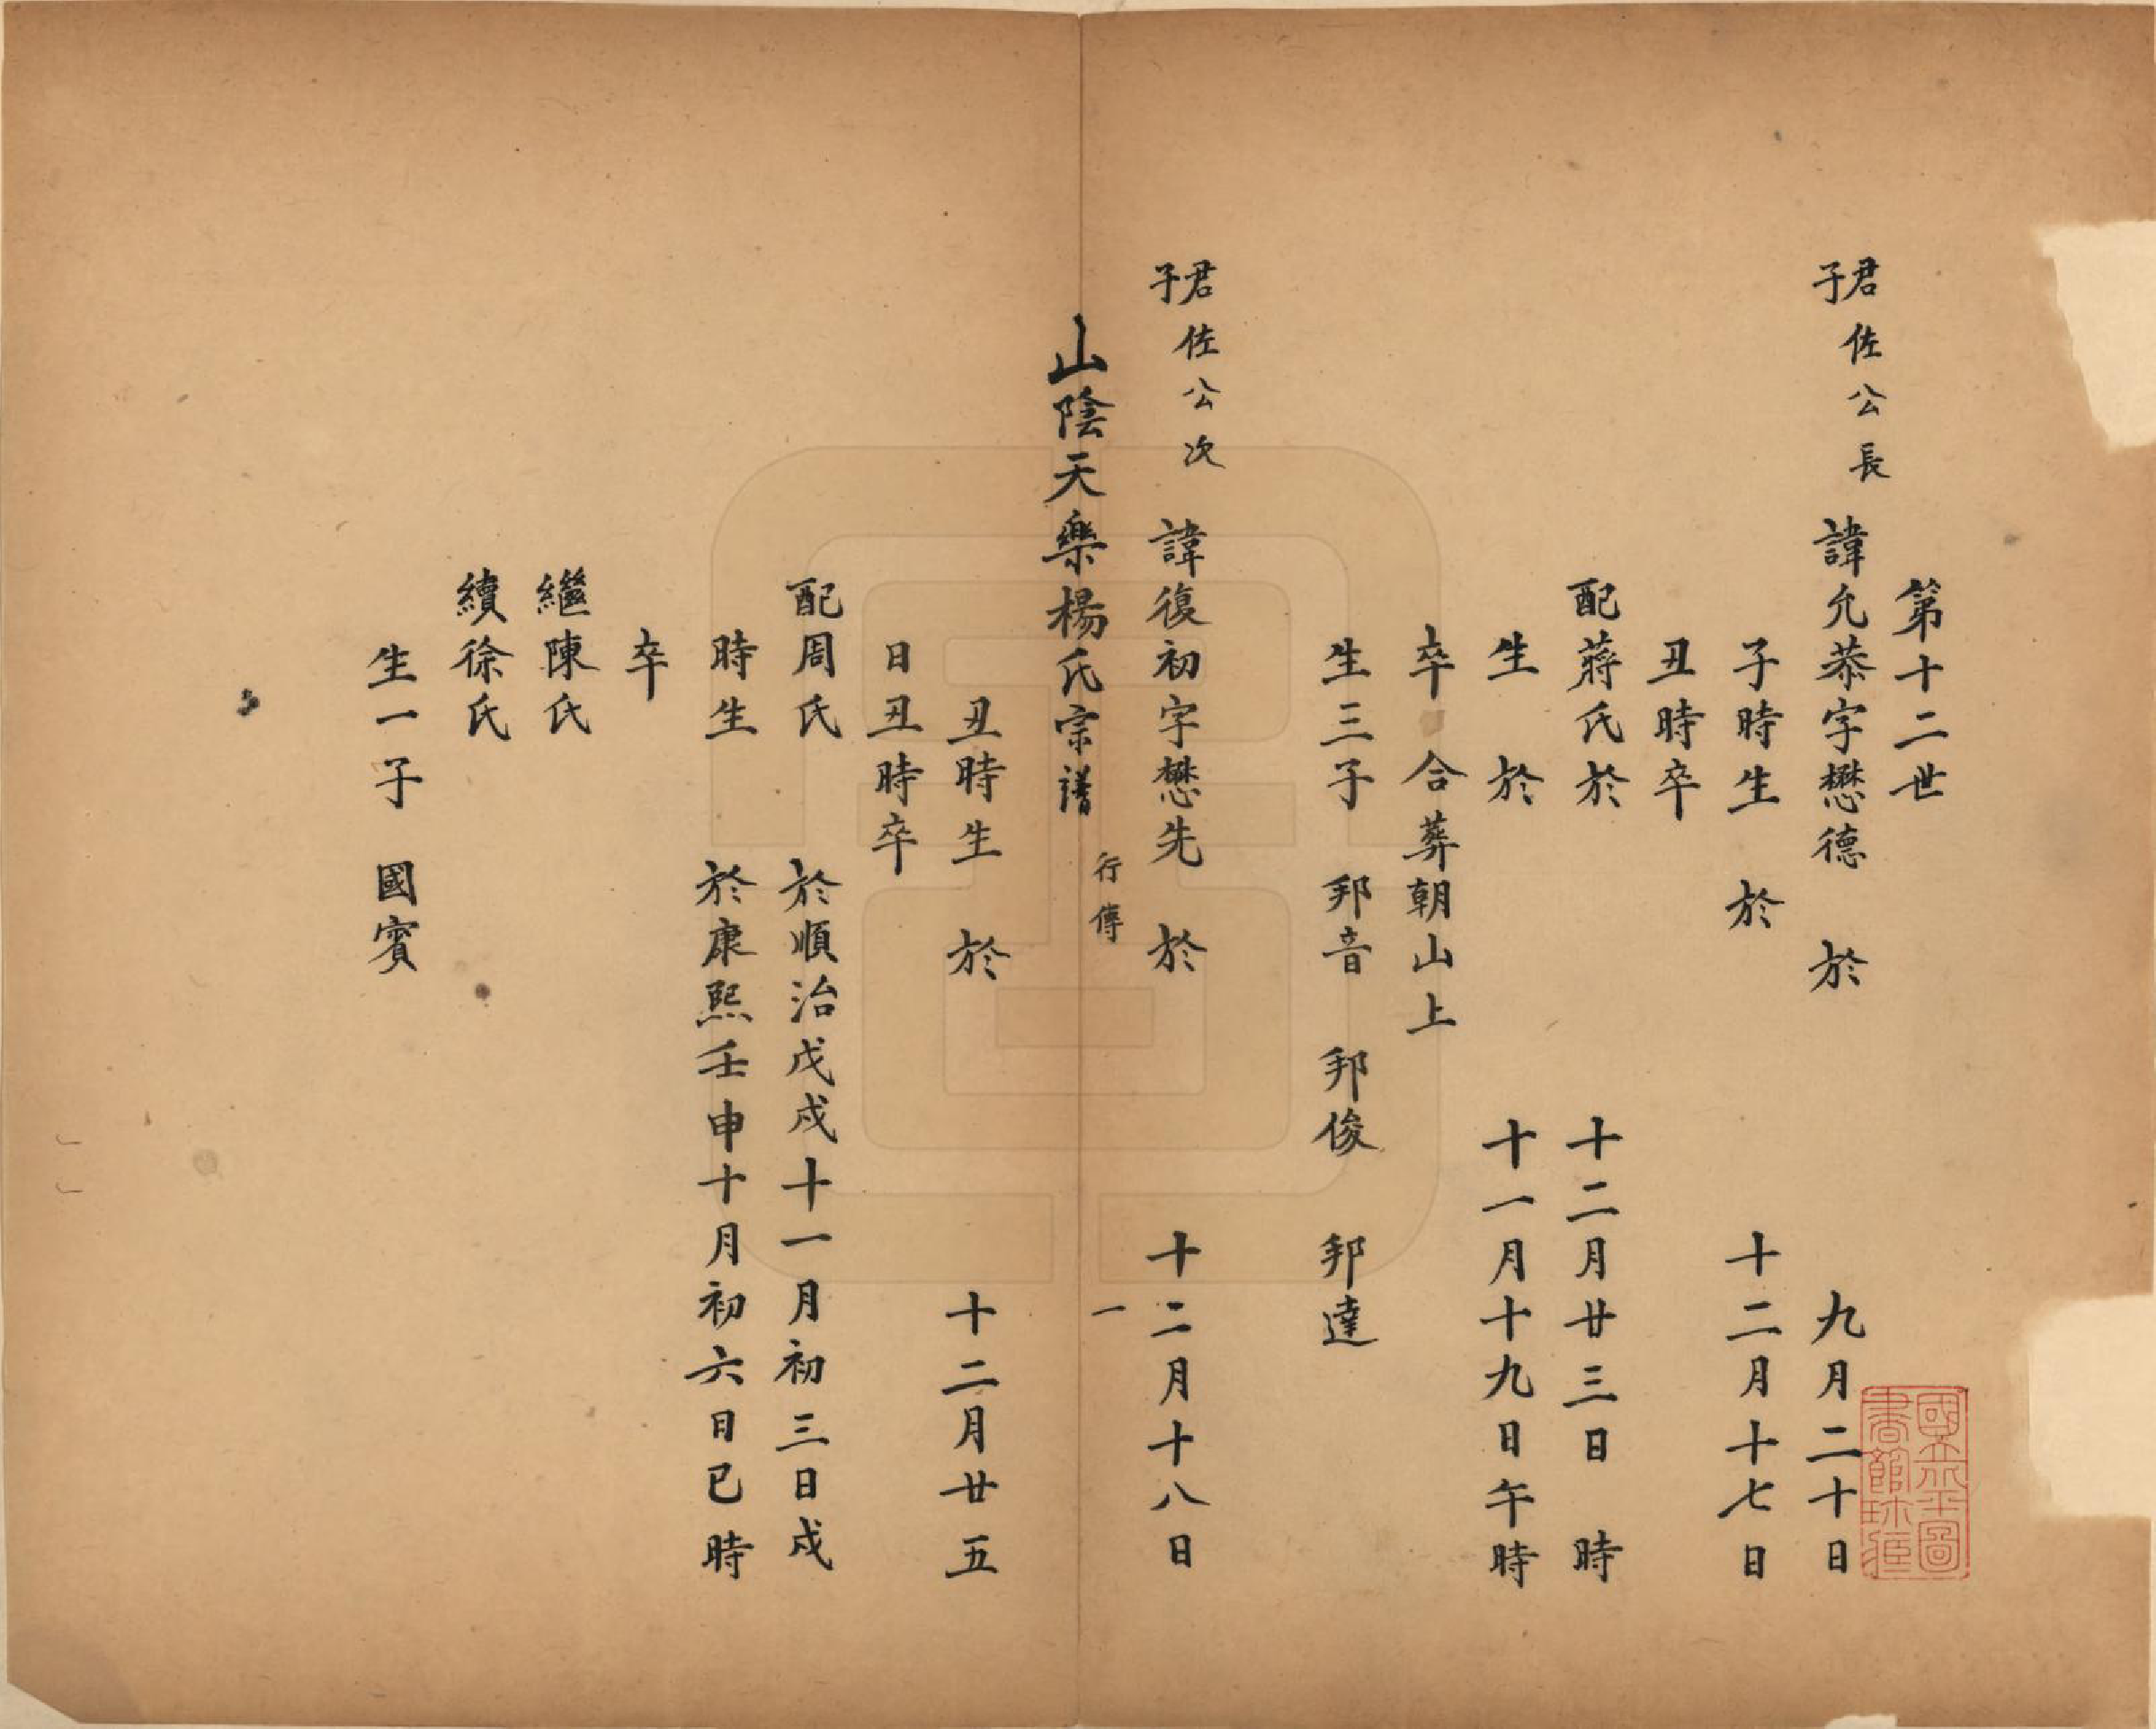 第十二世
君佐公長子 諱允恭字懋德 於 九月二十日
子時生 於 十二月十七日
丑時卒
配蔣氏於 十二月廿三日 時
生 於 十一月十九日午時
卒 合葬朝山上
生三子 邦音 邦俊 邦達
君佐公次子 諱復初字懋先 於 十二月十八日
山陰天樂楊氏宗譜 行傳 一
丑時生 於 十二月廿五
日丑時卒
配周氏 於順治戊戌十一月初三日戌
時生 於康熙壬申十月初六日巳時
卒
繼陳氏
續徐氏
生一子 國賓
國立北平圖書館珍藏